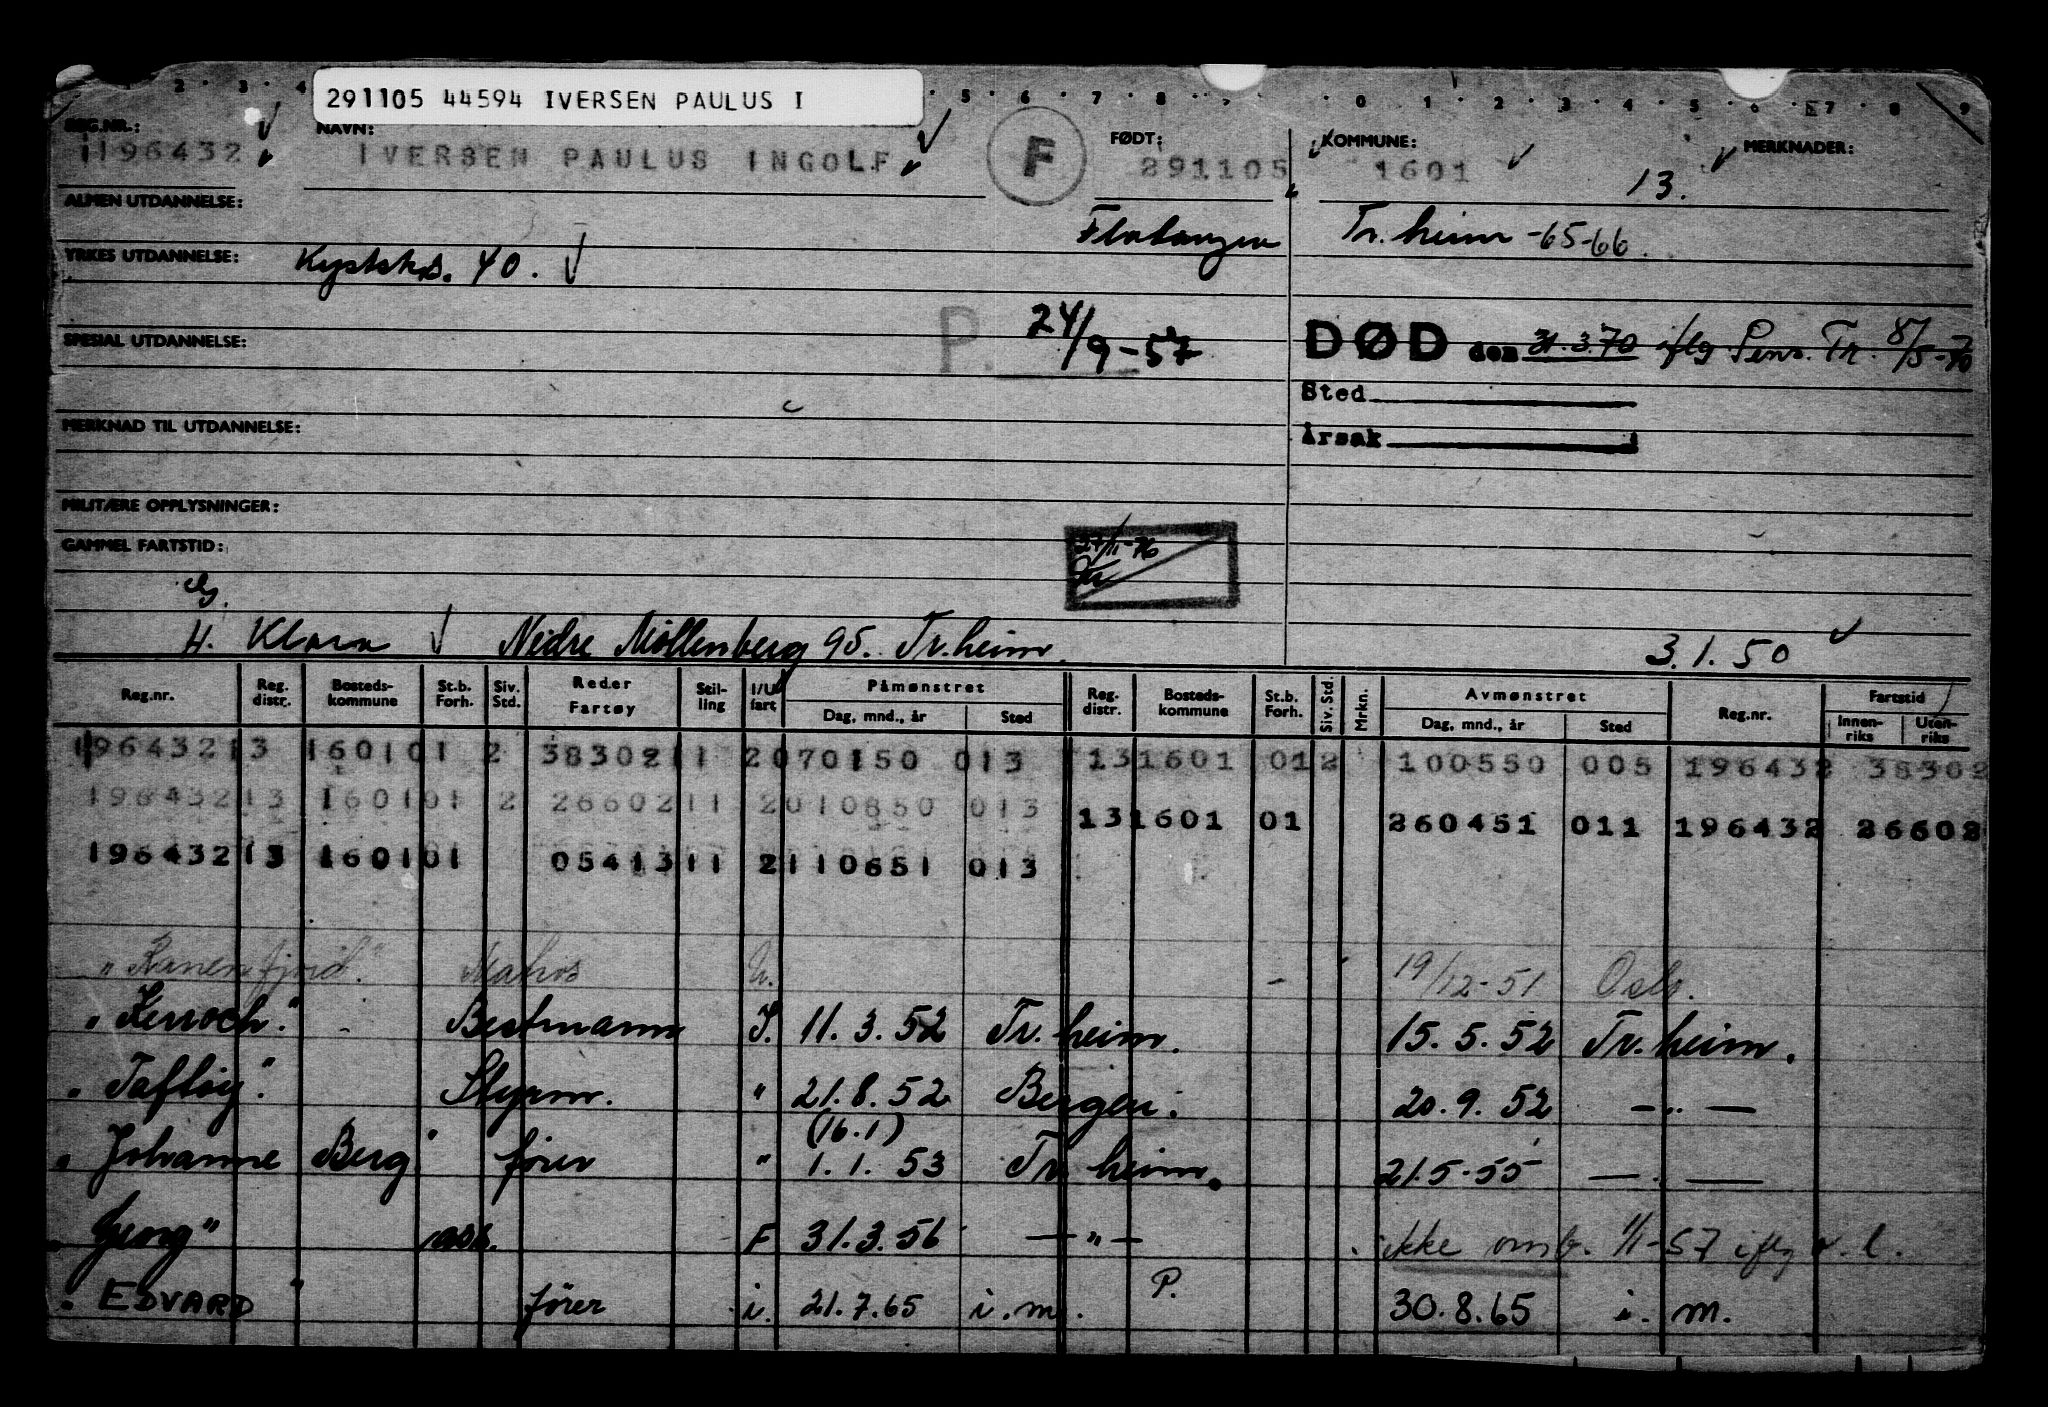 2 3 4 5 6 7 8 0 1 2 3 4 5 6 7 8 9
291105 44594 IVERSEN PAULUS I
REG.NR.: NAVN: FØDT: KOMMUNE: MERKNADER:
196432 IVERSEN PAULUS INGOLF F 291105 1601 13.
ALMEN UTDANNELSE:
Flatanger Tr.heim -65-66.
YRKES UTDANNELSE: Kystsk.s. 40.
SPESIAL UTDANNELSE: P. 24/9-57 DØD den 31.3.70 iflg Pens. Tr. 8/5-70
Sted
MERKNAD TIL UTDANNELSE: Årsak
MILITÆRE OPPLYSNINGER:
GAMMEL FARTSTID: 27/11-76
g.
H. Klara Nedre Möllenberg 95. Tr.heim. 3.1.50
Reg.nr. Reg. distr. Bosteds-kommune St.b. Forh. Siv. Std. Reder Fartøy Stil-ling I/U fart Påmønstret Dag, mnd., år Sted Reg. distr. Bosteds-kommune St.b. Forh. Siv. Std. Mrkn. Avmønstret Dag, mnd., år Sted Reg.nr. Fartstid Innen-riks Uten-riks
196432 13 1601 01 2 38302 11 2 070150 013 13 1601 01 2 100550 005 196432 38302
196432 13 1601 01 2 26602 11 2 010850 013 13 1601 01 260451 011 196432 26602
196432 13 1601 01 05413 11 2 110651 013
"Ranenfjord." Matros U. - 19/12-51 Oslo.
"Kerroch." - Bestmann I. 11.3.52 Tr.heim. 15.5.52 Tr.heim.
"Taftöy". Styrm. " 21.8.52 Bergen. 20.9.52 -"-
(16.1)
"Johanne Berg" förer " 1.1.53 Tr.heim. 21.5.55 -"-
"Georg" F 31.3.56 -"- ikke omb. 1/1-57 iflg
"EDVARD" förer i. 21.7.65 i.m. P. 30.8.65 i. m.